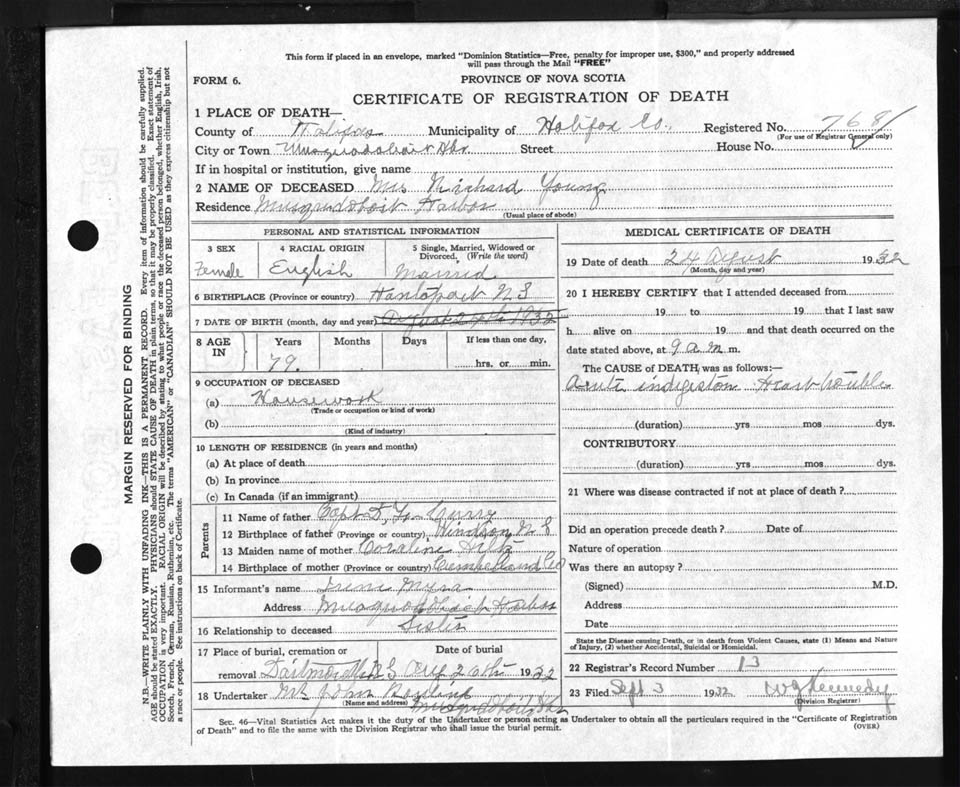 This form if placed in an envelope, marked "Dominion Statistics—Free, penalty for improper use, $300," and properly addressed
will pass through the Mail "FREE"
FORM 6.
PROVINCE OF NOVA SCOTIA
CERTIFICATE OF REGISTRATION OF DEATH
1 PLACE OF DEATH—
County of Halifax Municipality of Halifax Co., Registered No. 768
(For use of Registrar General only)
City or Town Musquodoboit Hbr Street House No.
If in hospital or institution, give name
2 NAME OF DECEASED Mrs Richard Young
Residence Musqudoboit Harbor
(Usual place of abode)
PERSONAL AND STATISTICAL INFORMATION
3 SEX Female
4 RACIAL ORIGIN English
5 Single, Married, Widowed or Divorced, (Write the word) Married
6 BIRTHPLACE (Province or country) Hantsport N S
7 DATE OF BIRTH (month, day and year) August 1932
8 AGE IN Years Months Days If less than one day,
79. hrs. or min.
9 OCCUPATION OF DECEASED
(a) Housework
(Trade or occupation or kind of work)
(b)
(Kind of industry)
10 LENGTH OF RESIDENCE (in years and months)
(a) At place of death
(b) In province
(c) In Canada (if an immigrant)
Parents
11 Name of father Capt D, Curry
12 Birthplace of father (Province or country) Windsor N S
13 Maiden name of mother
14 Birthplace of mother (Province or country) Cumberland Co
15 Informant's name
Address Harbor
16 Relationship to deceased Sister
17 Place of burial, cremation or removal Date of burial
Dartmouth N S Aug 26th 1932
18 Undertaker Mr John
(Name and address) Musqudoboit Hbr
MEDICAL CERTIFICATE OF DEATH
19 Date of death 24 August 1932
(Month, day and year)
20 I HEREBY CERTIFY that I attended deceased from
19 to 19 that I last saw
h alive on 19 and that death occurred on the
date stated above, at 9 a m m.
The CAUSE of DEATH was as follows:—
Acute indigestion Heart trouble
(duration) yrs mos dys.
CONTRIBUTORY
(duration) yrs mos dys.
21 Where was disease contracted if not at place of death?
Did an operation precede death? Date of
Nature of operation
Was there an autopsy?
(Signed) M.D.
Address
Date
State the Disease causing Death, or in death from Violent Causes, state (1) Means and Nature
of Injury, (2) whether Accidental, Suicidal or Homicidal.
22 Registrar's Record Number 13
23 Filed Sept 3 1932 W J Kennedy
(Division Registrar)
Sec. 46—Vital Statistics Act makes it the duty of the Undertaker or person acting as Undertaker to obtain all the particulars required in the "Certificate of Registration
of Death" and to file the same with the Division Registrar who shall issue the burial permit.
(OVER)
MARGIN RESERVED FOR BINDING
N.B.—WRITE PLAINLY WITH UNFADING INK—THIS IS A PERMANENT RECORD. Every item of information should be carefully supplied.
AGE should be stated EXACTLY. PHYSICIANS should STATE CAUSE OF DEATH in plain terms, so that it may be properly classified. Exact statement of
OCCUPATION is very important. RACIAL ORIGIN will be described by stating to what people or race the deceased person belonged, whether English, Irish,
Scotch, French, German, Russian, Ruthenian, etc. The terms "AMERICAN" or "CANADIAN" SHOULD NOT BE USED as they express citizenship but not
a race or people. See instructions on back of Certificate.